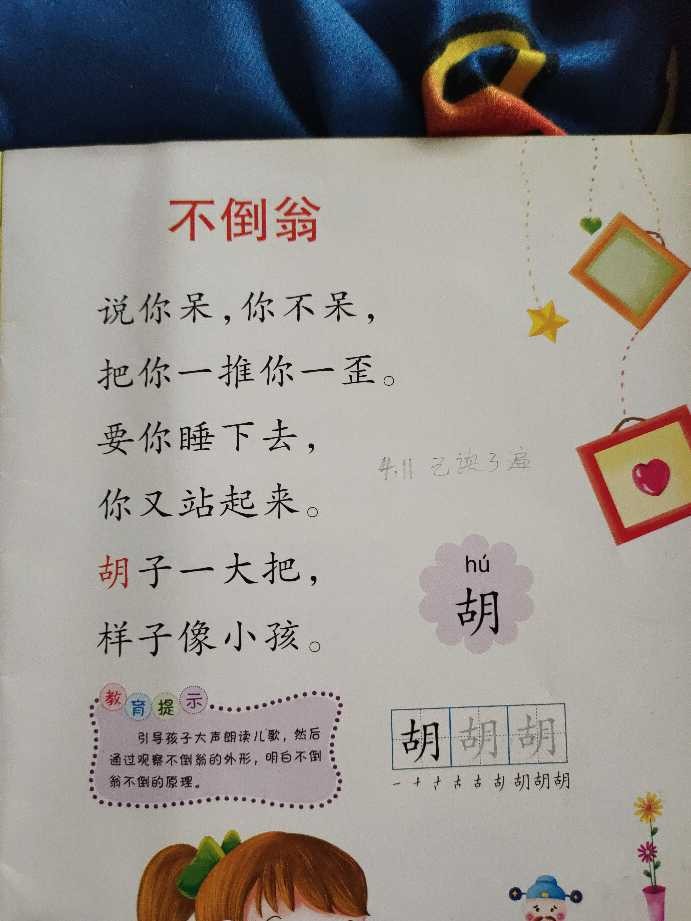 不倒翁
说你呆，你不呆，
把你一推你一歪。
要你睡下去，
你又站起来。
胡子一大把，
样子像小孩。
4.11 已读3遍
hú
胡
教育提示
引导孩子大声朗读儿歌，然后
通过观察不倒翁的外形，明白不倒
翁不倒的原理。
胡胡胡